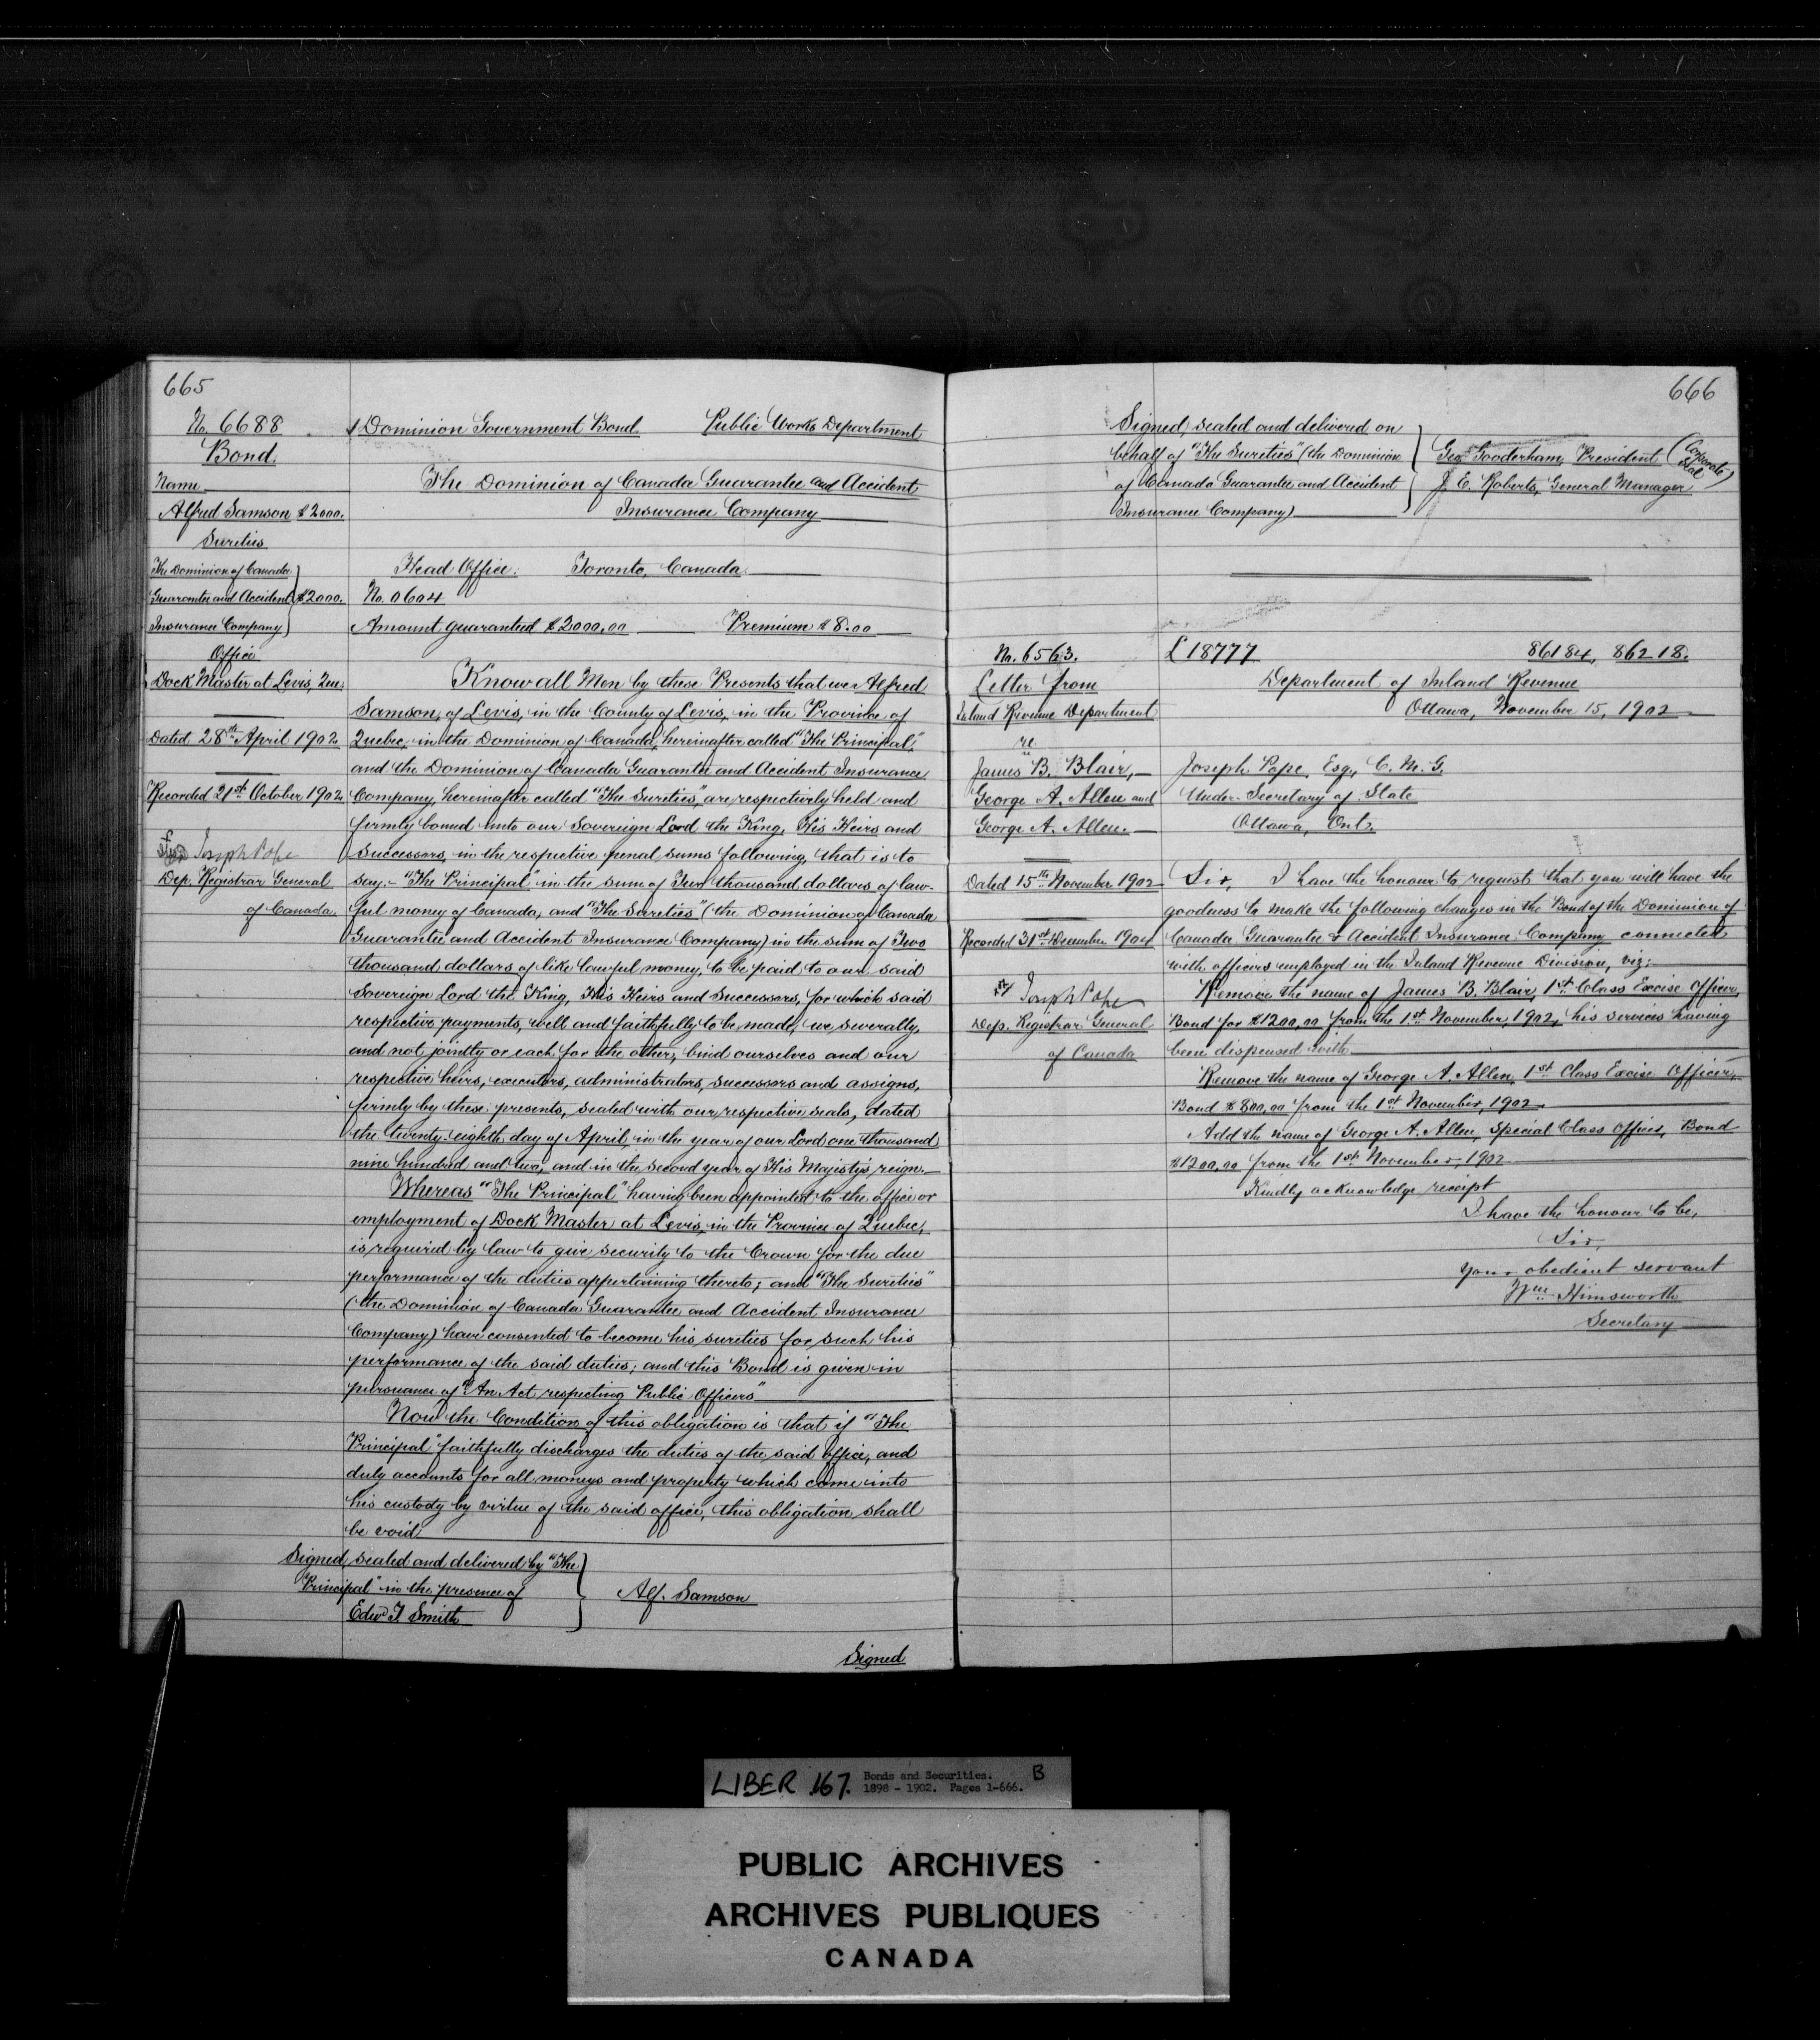 665
No. 6688
Bond.
Name
Alfred Samson $2000.
Sureties
The Dominion of Canada
Guarantee and Accident $2000.
Insurance Company
Office
Dock Master at Levis, Que.
Dated 28th April 1902
Recorded 21st October 1902
Joseph Pope
Dep. Registrar General
of Canada.
Dominion Government Bond Public Works Department
The Dominion of Canada Guarantee and Accident
Insurance Company
Head Office: Toronto, Canada.
No. 0604
Amount guaranteed $2000.00 Premium $8.00
Know all Men by these Presents that we Alfred
Samson, of Levis, in the County of Levis, in the Province of
Quebec, in the Dominion of Canada, hereinafter called "The Principal,"
and the Dominion of Canada Guarantee and Accident Insurance
Company, hereinafter called "The Sureties," are respectively held and
firmly bound unto our Sovereign Lord the King, His Heirs and
Successors, in the respective penal sums following, that is to
say:- "The Principal" in the sum of Two thousand dollars of law-
ful money of Canada, and "The Sureties" (the Dominion of Canada
Guarantee and Accident Insurance Company) in the sum of Two
thousand dollars of like lawful money, to be paid to our said
Sovereign Lord the King, His Heirs and Successors, for which said
respective payments, well and faithfully to be made, we severally,
and not jointly or each for the other, bind ourselves and our
respective heirs, executors, administrators, successors and assigns,
firmly by these presents, sealed with our respective seals, dated
the twenty-eighth day of April, in the year of our Lord one thousand
nine hundred and two, and in the second year of His Majesty's reign.
Whereas "The Principal" having been appointed to the office or
employment of Dock Master at Levis, in the Province of Quebec,
is required by law to give security to the Crown for the due
performance of the duties appertaining thereto; and "The Sureties"
(the Dominion of Canada Guarantee and Accident Insurance
Company) have consented to become his sureties for such his
performance of the said duties; and this Bond is given in
pursuance of "An Act respecting Public Officers"
Now the Condition of this obligation is that if "The
Principal" faithfully discharges the duties of the said office, and
duly accounts for all moneys and property which come into
his custody by virtue of the said office, this obligation shall
be void
Signed, sealed and delivered by "The
Principal" in the presence of
Edwd J. Smith
Alf. Samson
Signed
666
Signed, sealed and delivered on
behalf of "The Sureties" (the Dominion
of Canada Guarantee and Accident
Insurance Company)
Geo Gooderham, President
J. E. Roberts, General Manager
(Corporate Seal)
No. 6563.
Letter from
Inland Revenue Department
re
James B. Blair,
George A. Allen and
George A. Allen.
Dated 15th November 1902
Recorded 31st December 1904
Joseph Pope
Dep. Registrar General
of Canada
L 18777 86184, 86218.
Department of Inland Revenue
Ottawa, November 15, 1902
Joseph Pope, Esq., C. M. G.
Under-Secretary of State
Ottawa, Ont.
Sir, I have the honour to request that you will have the
goodness to make the following changes in the Bond of the Dominion of
Canada Guarantee & Accident Insurance Company connected
with officers employed in the Inland Revenue Division, viz:
Remove the name of James B. Blair, 1st Class Excise Officer,
Bond for $1200.00 from the 1st November, 1902, his services having
been dispensed with
Remove the name of George A. Allen, 1st Class Excise Officer,
Bond $800.00 from the 1st November, 1902.
Add the name of George A. Allen, Special Class Officer, Bond
$1200.00 from the 1st November, 1902
Kindly acknowledge receipt
I have the honour to be,
Sir,
Your obedient servant
Wm Himsworth
Secretary
LIBER 167. Bonds and Securities. B
1898 - 1902. Pages 1-666.
PUBLIC ARCHIVES
ARCHIVES PUBLIQUES
CANADA